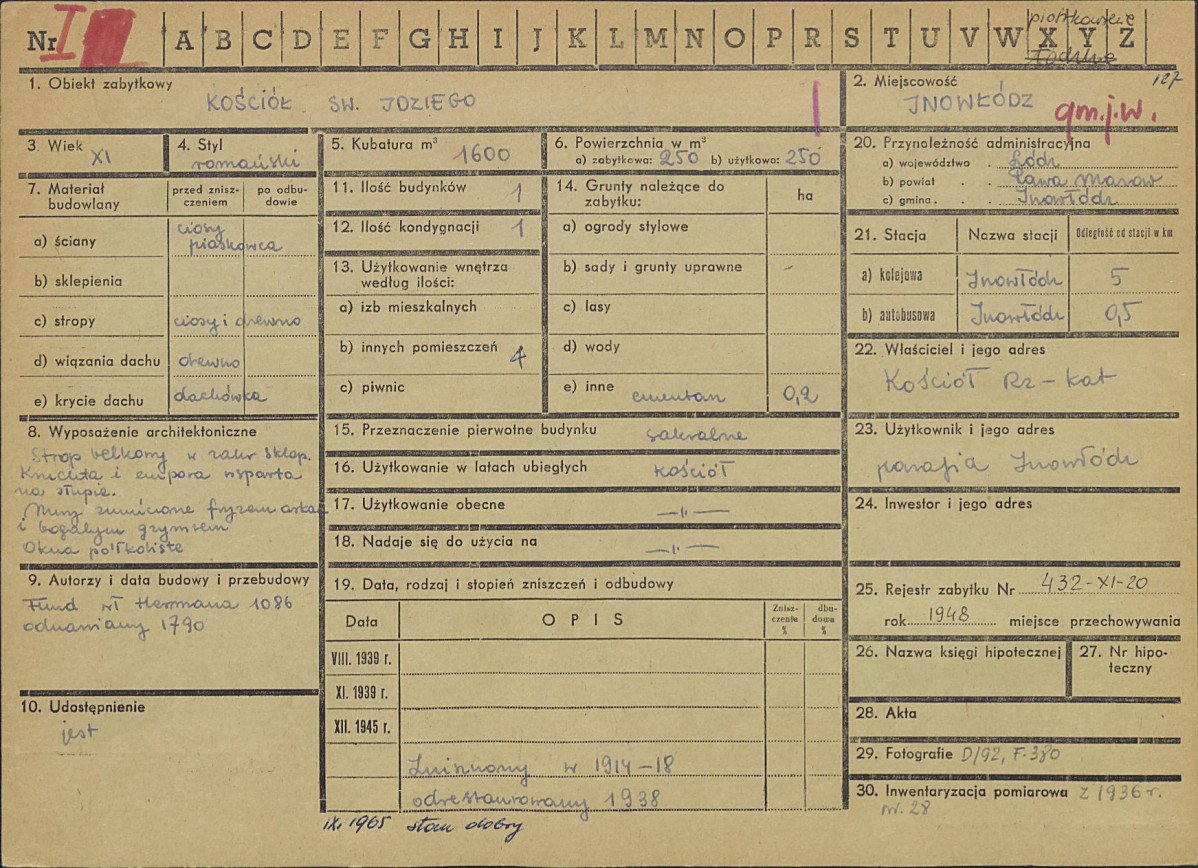 Nr I A B C D E F G H I J K L M N O P R S T U V W X Y Z
piotrkowskie
Łódzkie
1. Obiekt zabytkowy
KOŚCIÓŁ SW. IDZIEGO
2. Miejscowość 127
INOWŁÓDZ
gm.j.w.
3. Wiek XI
4. Styl
romański
5. Kubatura m³ 1600
6. Powierzchnia w m²
a) zabytkowa: 250 b) użytkowa: 250
20. Przynależność administracyjna
a) województwo . Łódź
b) powiat . . Rawa Mazow
c) gmina . . . Inowłódz
7. Materiał budowlany
przed zniszczeniem
po odbudowie
a) ściany ciosy piaskowca
b) sklepienia
c) stropy ciosy i drewno
d) wiązania dachu drewno
e) krycie dachu dachówka
11. Ilość budynków 1
12. Ilość kondygnacji 1
13. Użytkowanie wnętrza
według ilości:
a) izb mieszkalnych
b) innych pomieszczeń 4
c) piwnic
14. Grunty należące do
zabytku: ha
a) ogrody stylowe
b) sady i grunty uprawne -
c) lasy
d) wody
e) inne cmentarz 0,2
21. Stacja Nazwa stacji Odległość od stacji w km
a) kolejowa Inowłódz 5
b) autobusowa Inowłódz 0,5
22. Właściciel i jego adres
Kościół Rz-kat
8. Wyposażenie architektoniczne
Strop belkowy w zakr sklep.
Kruchta i empora wsparta
na słupie.
Mury zwieńczone fryzem arkad
i bogatym gzymsem
Okna półkoliste
15. Przeznaczenie pierwotne budynku sakralne
16. Użytkowanie w latach ubiegłych kościół
17. Użytkowanie obecne —"—
18. Nadaje się do użycia na —"—
23. Użytkownik i jego adres
parafia Inowłódz
24. Inwestor i jego adres
9. Autorzy i data budowy i przebudowy
Fund wł Hermana 1086
odnawiany 1790
10. Udostępnienie
jest
19. Data, rodzaj i stopień zniszczeń i odbudowy
Data OPIS Zniszczenia % dbudowa %
VIII. 1939 r.
XI. 1939 r.
XII. 1945 r.
Zniszczony w 1914-18
odrestaurowany 1938
IX. 1965 stan dobry
25. Rejestr zabytku Nr 432-XI-20
rok 1948 miejsce przechowywania
26. Nazwa księgi hipotecznej
27. Nr hipoteczny
28. Akta
29. Fotografie D/92, F-380
30. Inwentaryzacja pomiarowa z 1936 r.
nr. 28